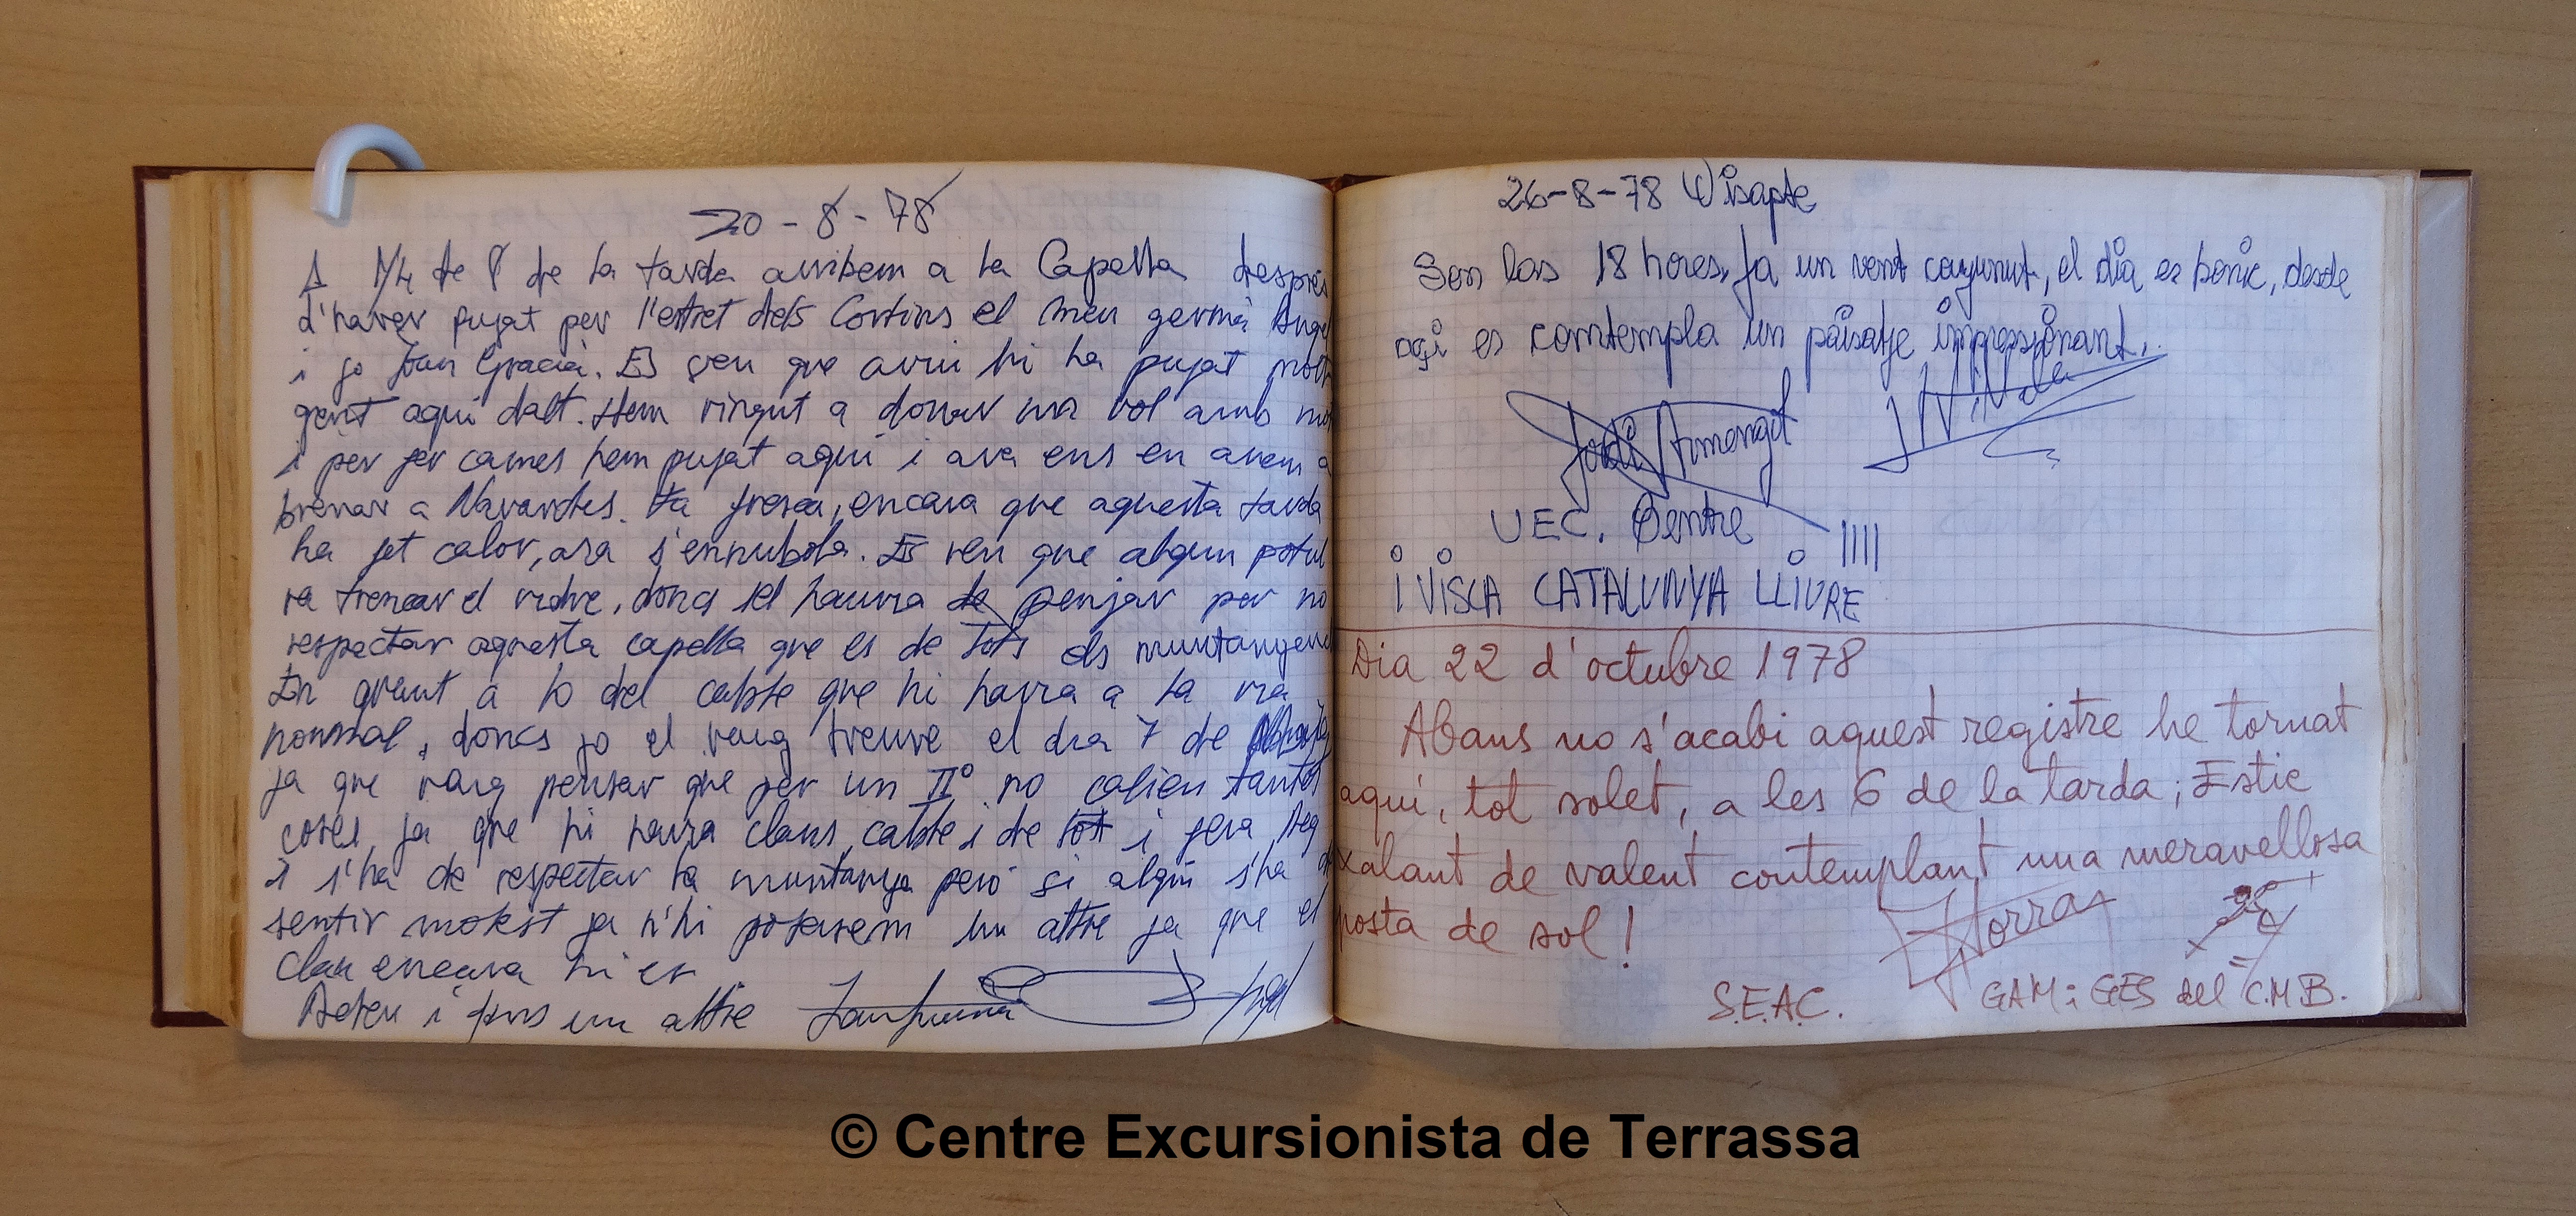 20-8-78
A 1/4 de 8 de la tarda arribem a la Capella després
d'haver pujat per l'estret dels Cortins el meu germà Angel
i jo Joan Gracia. Es veu que avui hi ha pujat molta
gent aqui dalt. Hem vingut a donar un vol amb
i per fer cames hem pujat aqui i ara ens en anem a
brenar a Navarcles. Fa fresca, encara que aquesta tarda
ha fet calor, ara s'ennubola. Es veu que algun
va trencar el vidre, doncs se'l hauria de penjar per no
respectar aquesta capella que es de tots els
En quant a lo del cable que hi havia a la via
normal, doncs jo el vaig treure el dia 7 de
ja que vaig pensar que per un IIº no calien tantes
coses, ja que hi havia claus, cable i de tot i
I s'ha de respectar la muntanya però si algú s'ha de
sentir molest ja n'hi posarem un altre ja que el
clau encara hi es
Adeu i fins un altre
26-8-78 Disapte
Son las 18 hores, fa un vent collonut, el dia es bonic, desde
aqi es comtempla un paisatje impressionant.
Jordi Armengol
UEC. Centre
i VISCA CATALUNYA LLIURE !!!!
Dia 22 d'octubre 1978
Abans no s'acabi aquest registre he tornat
aqui, tot solet, a les 6 de la tarda; Estic
xalant de valent contemplant una meravellosa
posta de sol!
JTorras
S.E.A.C. GAM i GES del C.M.B.
© Centre Excursionista de Terrassa